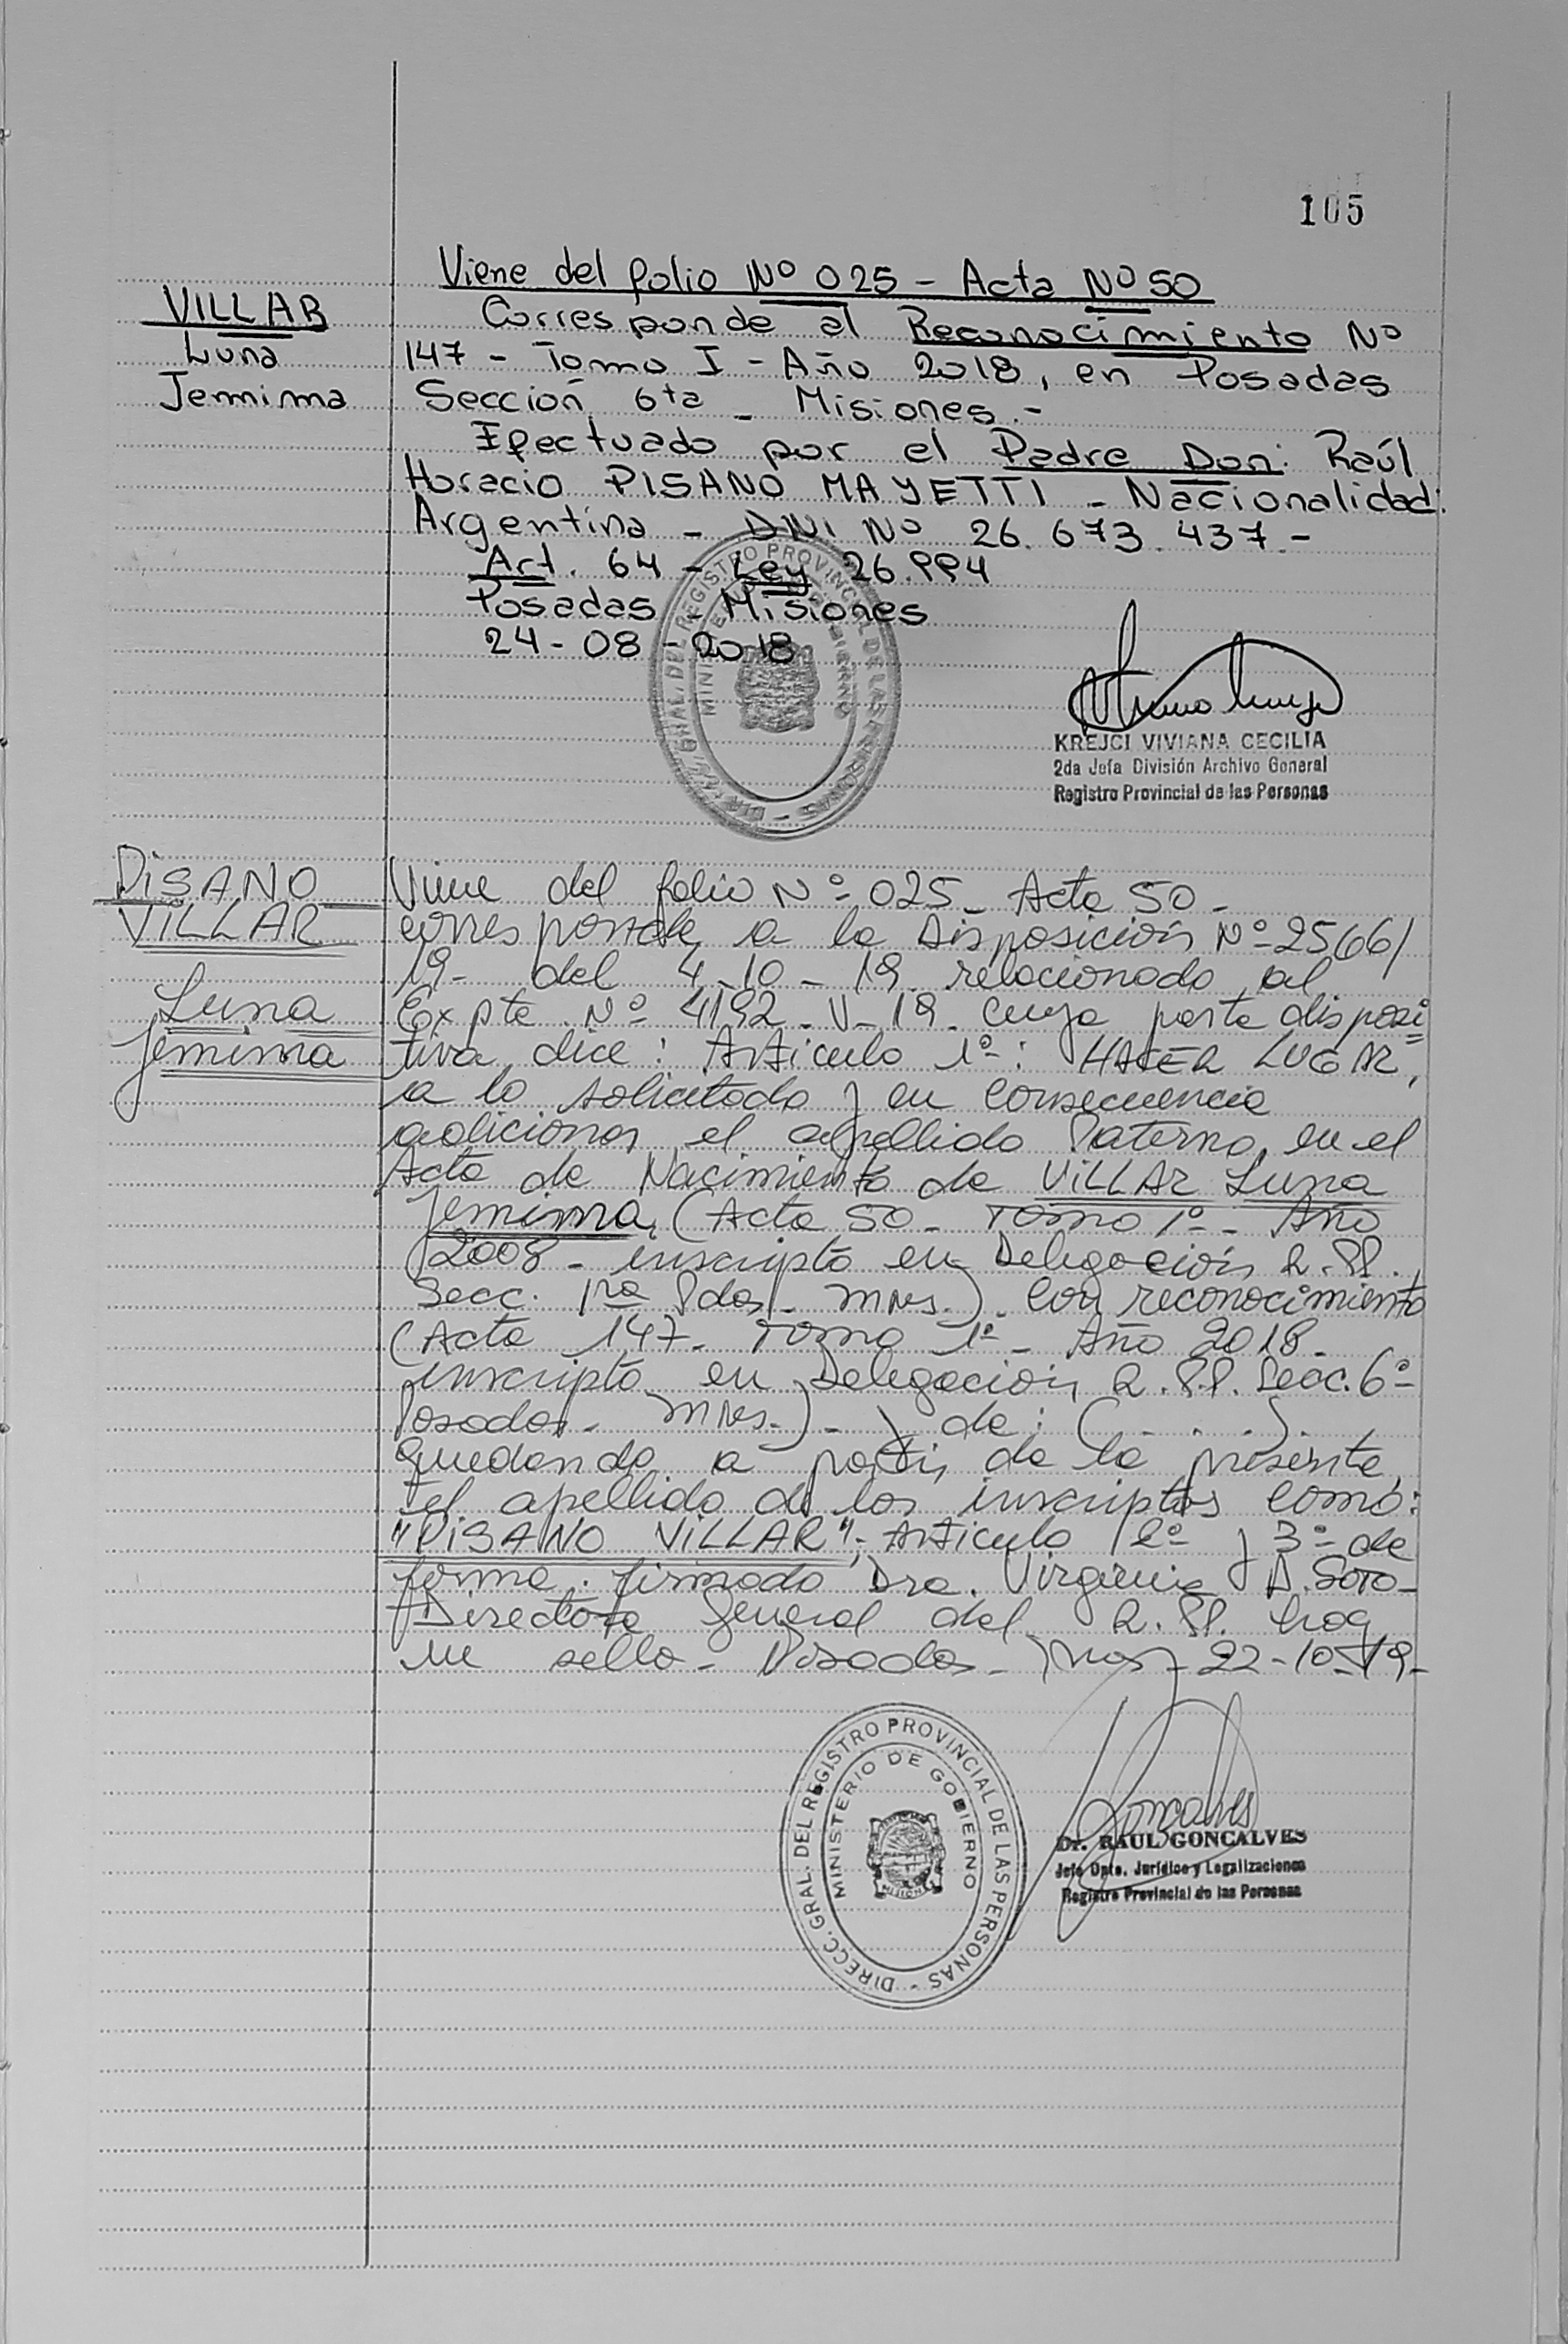 105
Viene del folio Nº 025 - Acta Nº 50
VILLAR
Luna
Jemima
Corresponde al Reconocimiento Nº
147 - Tomo I - Año 2018, en Posadas
Sección 6ta - Misiones.-
Efectuado por el Padre Don: Raúl
Horacio PISANO MAYETTI - Nacionalidad:
Argentina - DNI Nº 26.673.437.-
Art. 64 - Ley 26.994
Posadas - Misiones
24-08-2018
DIRECC. GRAL. DEL REGISTRO PROVINCIAL DE LAS PERSONAS
MINISTERIO DE GOBIERNO
KREJCI VIVIANA CECILIA
2da Jefa División Archivo General
Registro Provincial de las Personas
PISANO
VILLAR
Luna
Jemima
Viene del folio Nº 025 - Acta 50 -
corresponde a la Disposición Nº 2566/
19- del 4-10-19 relacionado al
Expte. Nº 4192-V-19. cuya parte disposi
tiva dice: Artículo 1º: HACER LUGAR,
a lo solicitado y en consecuencia
adicionar el apellido Paterno, en el
Acta de Nacimiento de VILLAR Luna
Jemima, (Acta 50 - Tomo 1º - Año
2008 - inscripto en Delegación R.PP.
Secc. 1ra Pdas - Mnes.) con reconocimiento
(Acta 147 - Tomo 1º - Año 2018 -
inscripto en Delegación R.P.P. Secc. 6º
Posadas - Mnes.) - y de: (. . . .)
quedando a partir de la presente,
el apellido de los inscriptos como:
"PISANO VILLAR"; Artículo 2º y 3º de
forma. firmado Dra. Virginia A. Soto-
Directora General del R.PP. hay
un sello - Posadas - Mnes - 22-10-19-
DIRECC. GRAL. DEL REGISTRO PROVINCIAL DE LAS PERSONAS
MINISTERIO DE GOBIERNO
MISIONES
Goncalves
Dr. RAUL GONCALVES
Jefe Dpto. Jurídico y Legalizaciones
Registro Provincial de las Personas